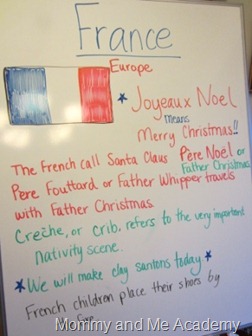 France
Europe
* Joyeaux Noel
means
Merry Christmas!!
The French call Santa Claus Père Noel or
Father Christmas.
Pere Fouttard or Father Whipper travels
with Father Christmas.
Creche, or crib, refers to the very important
Nativity scene.
* We will make clay santons today *
French children place their shoes by
Mommy and Me Academy